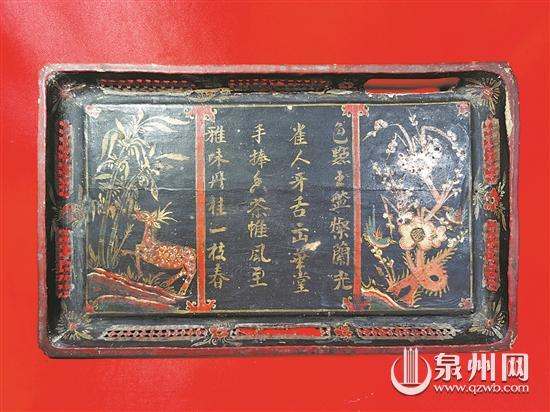 色艷玉燦蘭光
雀人牙舌堂
手捧香茶惟風至
雅味丹桂一枝春
泉州网
www.qzwb.com